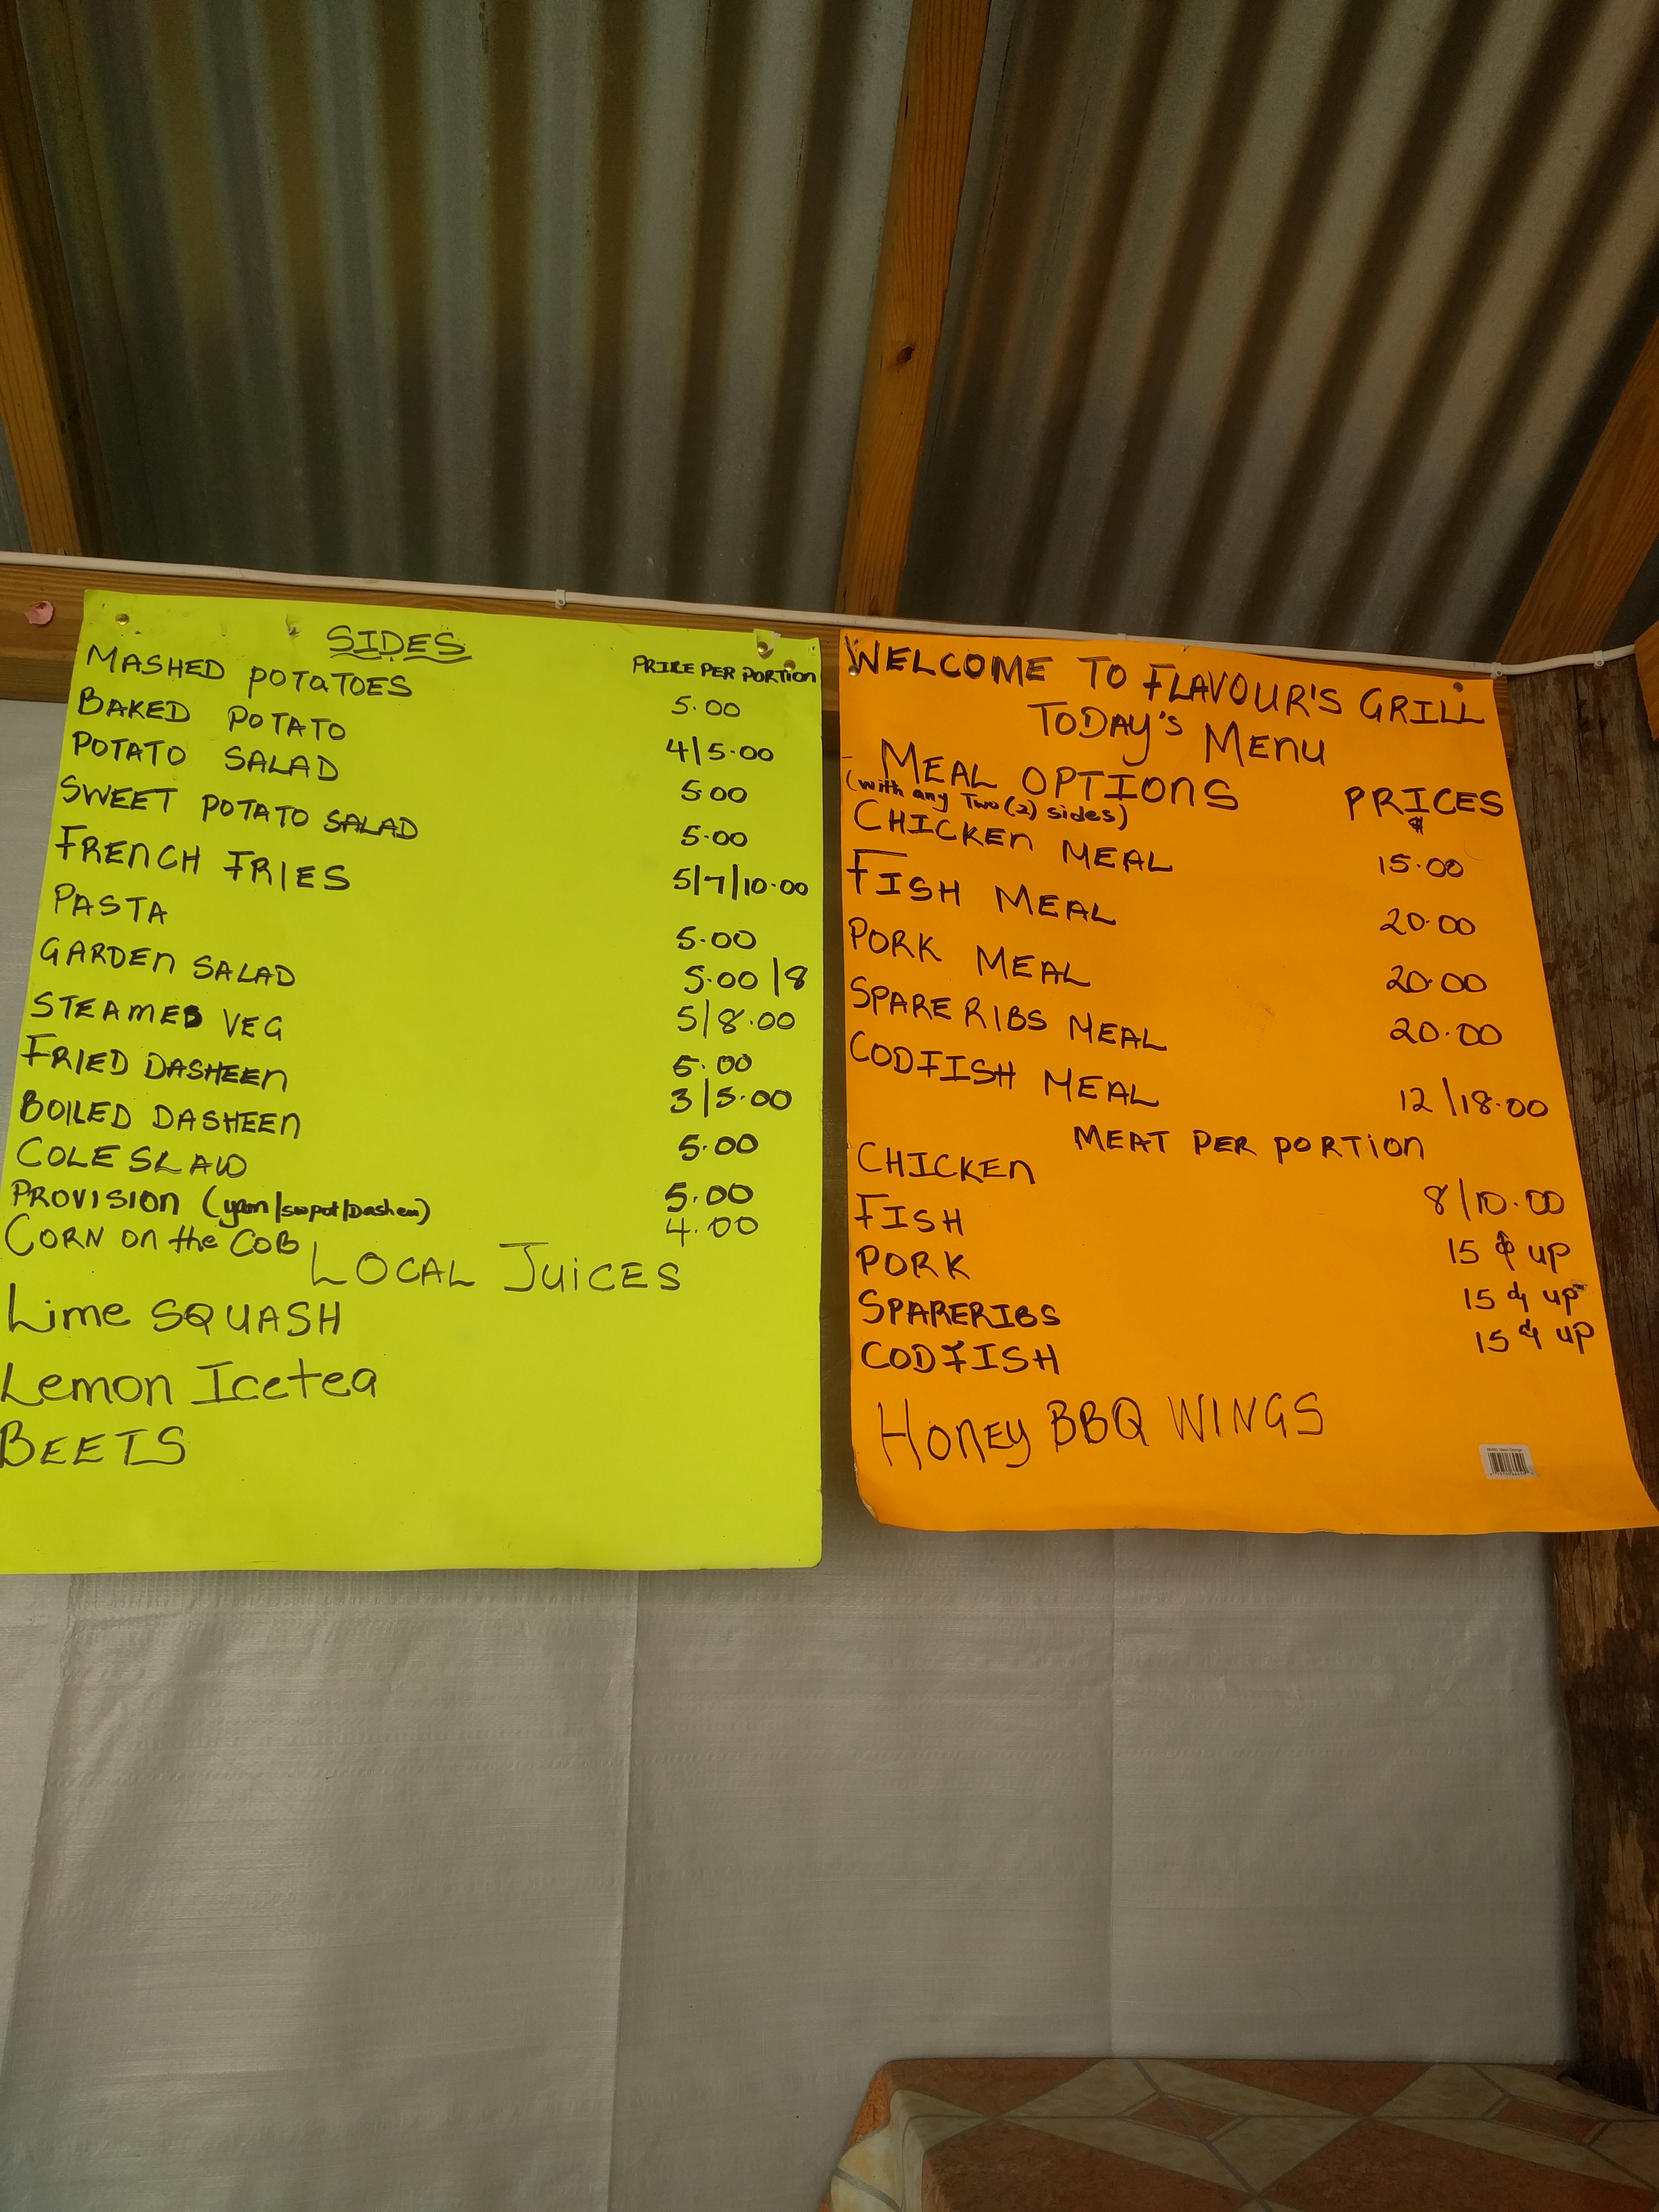 SIDES
PRICE PER PORTION
MASHED POTATOES 5.00
BAKED POTATO 4/5.00
POTATO SALAD 5.00
SWEET POTATO SALAD 5.00
FRENCH FRIES 5/7/10.00
PASTA 5.00
GARDEN SALAD 5.00/8
STEAMED VEG 5/8.00
FRIED DASHEEN 5.00
BOILED DASHEEN 3/5.00
COLESLAW 5.00
PROVISION (yam/swpot/Dasheen) 5.00
CORN on the COB 4.00
LOCAL JUICES
Lime SQUASH
Lemon Icetea
BEETS
WELCOME TO FLAVOUR'S GRILL
TODAY'S MENU
- MEAL OPTIONS PRICES
(with any Two (2) sides) $
CHICKEN MEAL 15.00
FISH MEAL 20.00
PORK MEAL 20.00
SPARE RIBS MEAL 20.00
CODFISH MEAL 12/18.00
MEAT PER PORTION
CHICKEN 8/10.00
FISH 15 & up
PORK 15 & up
SPARERIBS 15 & up
CODFISH
HONEY BBQ WINGS